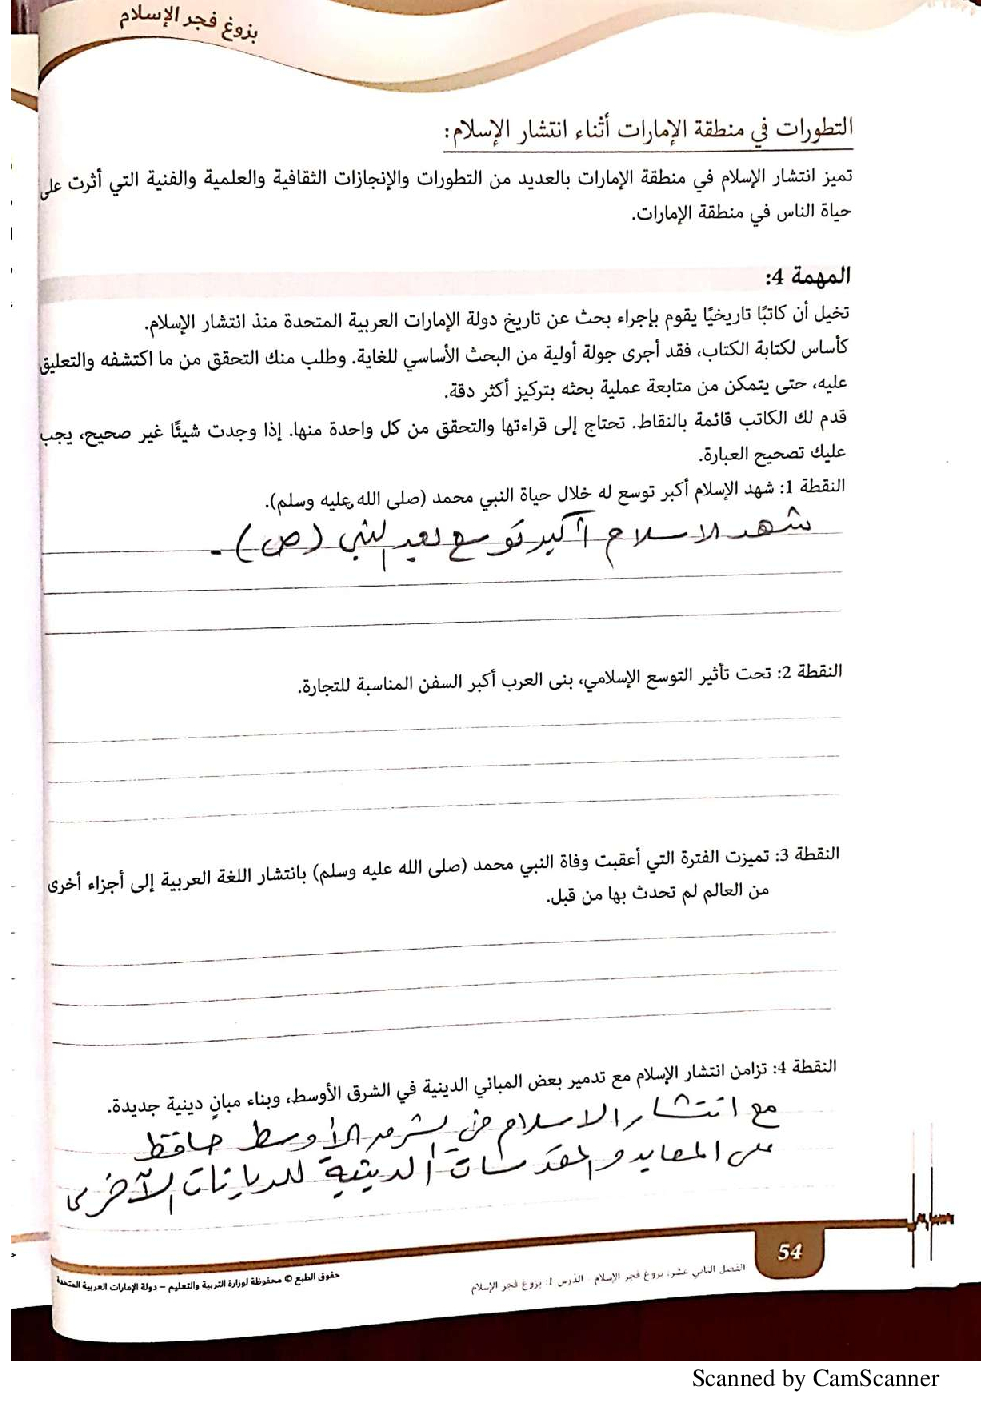 بزوغ فجر الإسلام
التطورات في منطقة الإمارات أثناء انتشار الإسلام:
تميز انتشار الإسلام في منطقة الإمارات بالعديد من التطورات والإنجازات الثقافية والعلمية والفنية التي أثرت على
حياة الناس في منطقة الإمارات.
المهمة 4:
تخيل أن كاتبًا تاريخيًا يقوم بإجراء بحث عن تاريخ دولة الإمارات العربية المتحدة منذ انتشار الإسلام.
كأساس لكتابة الكتاب، فقد أجرى جولة أولية من البحث الأساسي للغاية. وطلب منك التحقق من ما اكتشفه والتعليق
عليه، حتى يتمكن من متابعة عملية بحثه بتركيز أكثر دقة.
قدم لك الكاتب قائمة بالنقاط. تحتاج إلى قراءتها والتحقق من كل واحدة منها. إذا وجدت شيئًا غير صحيح، يجب
عليك تصحيح العبارة.
النقطة 1: شهد الإسلام أكبر توسع له خلال حياة النبي محمد (صلى الله عليه وسلم).
شهد الاسلام أكبر توسع بعد النبي (ص).
النقطة 2: تحت تأثير التوسع الإسلامي، بنى العرب أكبر السفن المناسبة للتجارة.
النقطة 3: تميزت الفترة التي أعقبت وفاة النبي محمد (صلى الله عليه وسلم) بانتشار اللغة العربية إلى أجزاء أخرى
من العالم لم تحدث بها من قبل.
النقطة 4: تزامن انتشار الإسلام مع تدمير بعض المباني الدينية في الشرق الأوسط، وبناء مبانٍ دينية جديدة.
مع انتشار الاسلام في شرق الأوسط حافظ
على المعابد و المقدسات الدينية للديانات الأخرى
54
الفصل الثاني عشر: بزوغ فجر الإسلام - الدرس 1: بزوغ فجر الإسلام
حقوق الطبع © محفوظة لوزارة التربية والتعليم – دولة الإمارات العربية المتحدة
Scanned by CamScanner